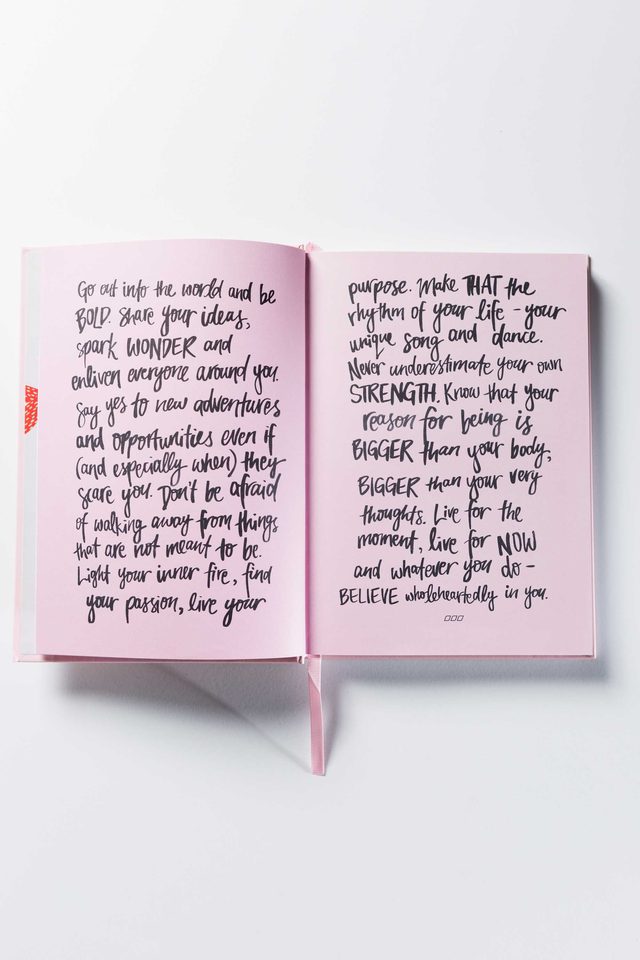 Go out into the world and be
BOLD. Share your ideas,
spark WONDER and
enliven everyone around you.
Say yes to new adventures
and opportunities even if
(and especially when) they
scare you. Don't be afraid
of walking away from things
that are not meant to be.
Light your inner fire, find
your passion, live your
purpose. Make THAT the
rhythm of your life - your
unique song and dance.
Never underestimate your own
STRENGTH. Know that your
reason for being is
BIGGER than your body,
BIGGER than your very
thoughts. Live for the
moment, live for NOW
and whatever you do -
BELIEVE wholeheartedly in you.